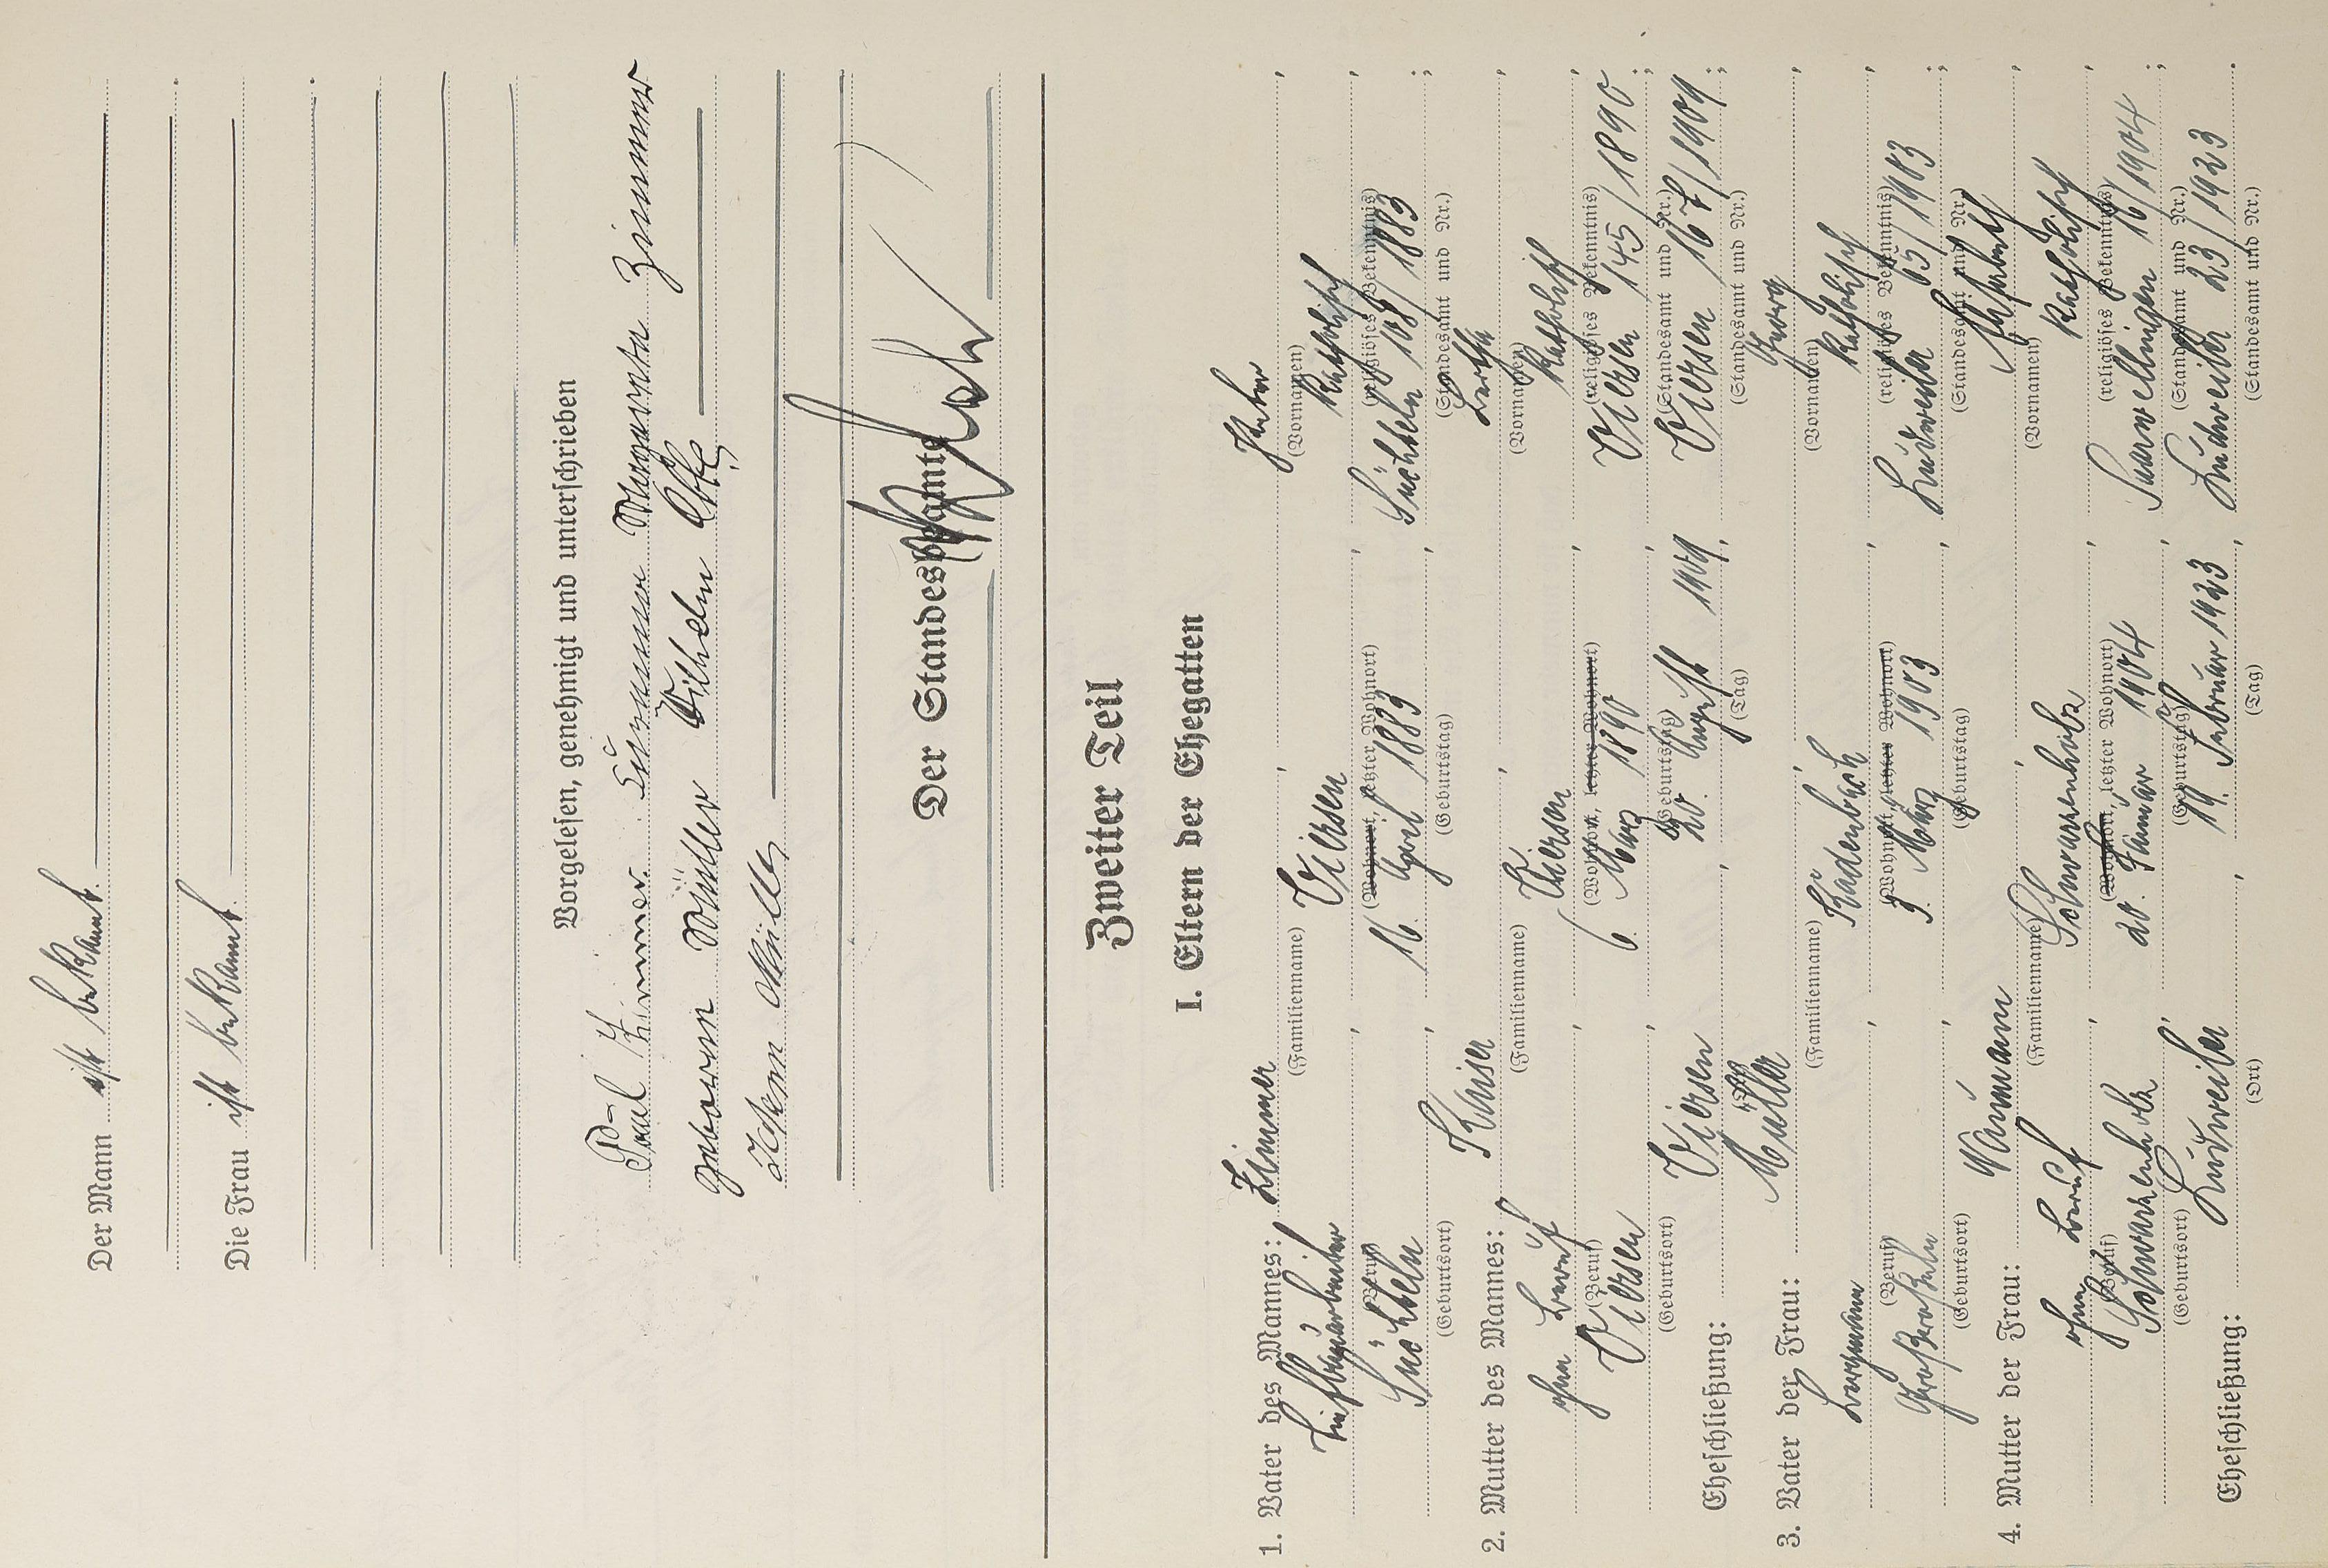 Der Mann ist bekannt.
Die Frau ist bekannt.
Vorgelesen, genehmigt und unterschrieben
Paul Zimmer. Susanna Margareta Zimmer
geboren Müller Wilhelm
Müller
Der Standesbeamte
Zweiter Teil
I. Eltern der Ehegatten
1. Vater des Mannes: Zimmer
(Familienname) (Vornamen)
Tiefbauarbeiter, Viersen, katholisch,
(Beruf) (Wohnort, letzter Wohnort) (religiöses Bekenntnis)
Süchteln, 16. April 1883, Süchteln 108/1883;
(Geburtsort) (Geburtstag) (Standesamt und Nr.)
2. Mutter des Mannes: Kaiser, Bertha,
(Familienname) (Vornamen)
ohne Beruf, Viersen, katholisch,
(Beruf) (Wohnort, letzter Wohnort) (religiöses Bekenntnis)
Viersen, 6. März 1890, Viersen 145/1890;
(Geburtsort) (Geburtstag) (Standesamt und Nr.)
Eheschließung: Viersen, 20. August 1909, Viersen 167/1909;
(Ort) (Tag) (Standesamt und Nr.)
3. Vater der Frau: Müller, Georg,
(Familienname) (Vornamen)
Bergmann, katholisch,
(Beruf) (Wohnort, letzter Wohnort) (religiöses Bekenntnis)
3. März 1903, Ludweiler 65/1903;
(Geburtsort) (Geburtstag) (Standesamt und Nr.)
4. Mutter der Frau: Naumann, Elisabeth,
(Familienname) (Vornamen)
ohne Beruf, Schwarzenholz, katholisch,
(Beruf) (Wohnort, letzter Wohnort) (religiöses Bekenntnis)
Schwarzenholz, 20. Januar 1904, Saarwellingen 16/1904;
(Geburtsort) (Geburtstag) (Standesamt und Nr.)
Eheschließung: Ludweiler, 19. Februar 1923, Ludweiler 23/1923.
(Ort) (Tag) (Standesamt und Nr.)